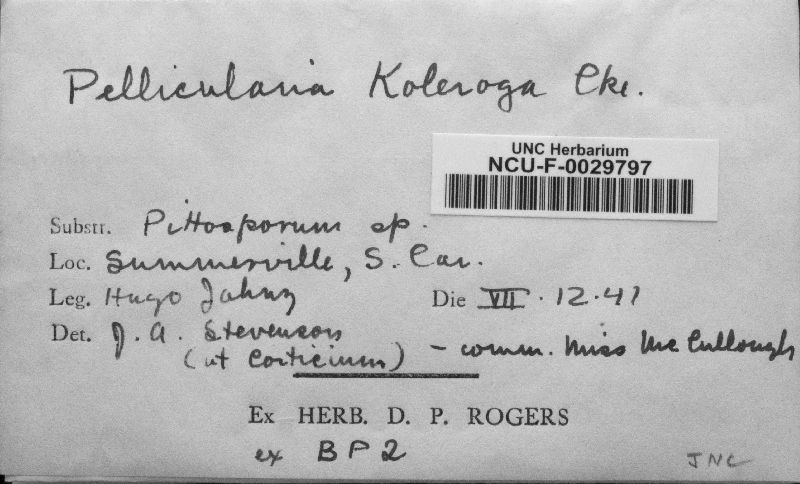 Pellicularia Koleroga Cke.
UNC Herbarium
NCU-F-0029797
Substr. Pittosporum sp.
Loc. Summerville, S. Car.
Leg. Hugo Jahnz Die VII. 12. 41
Det. J. A. Stevenson
(ut Corticium) – comm. Miss McCullough
Ex HERB. D. P. ROGERS
ex BP2
JNC